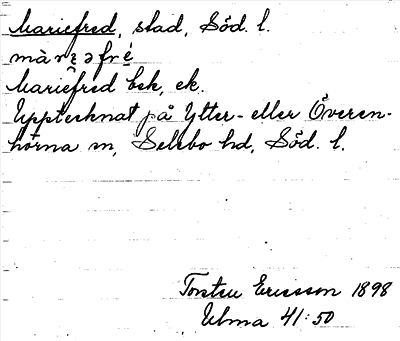 Mariefred, stad, Söd. l.
Mariefred bsk, ek.
Upptecknat på Ytter- eller Överen-
hörna sn, Selebo hd, Söd. l.
Torsten Ericsson 1898
Ulma 41:50